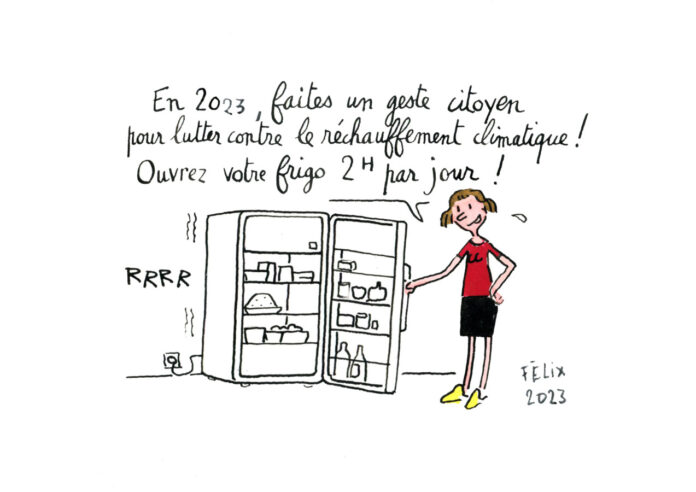 En 2023, faites un geste citoyen
pour lutter contre le réchauffement climatique !
Ouvrez votre frigo 2H par jour !
RRRR
FÉLIX
2023